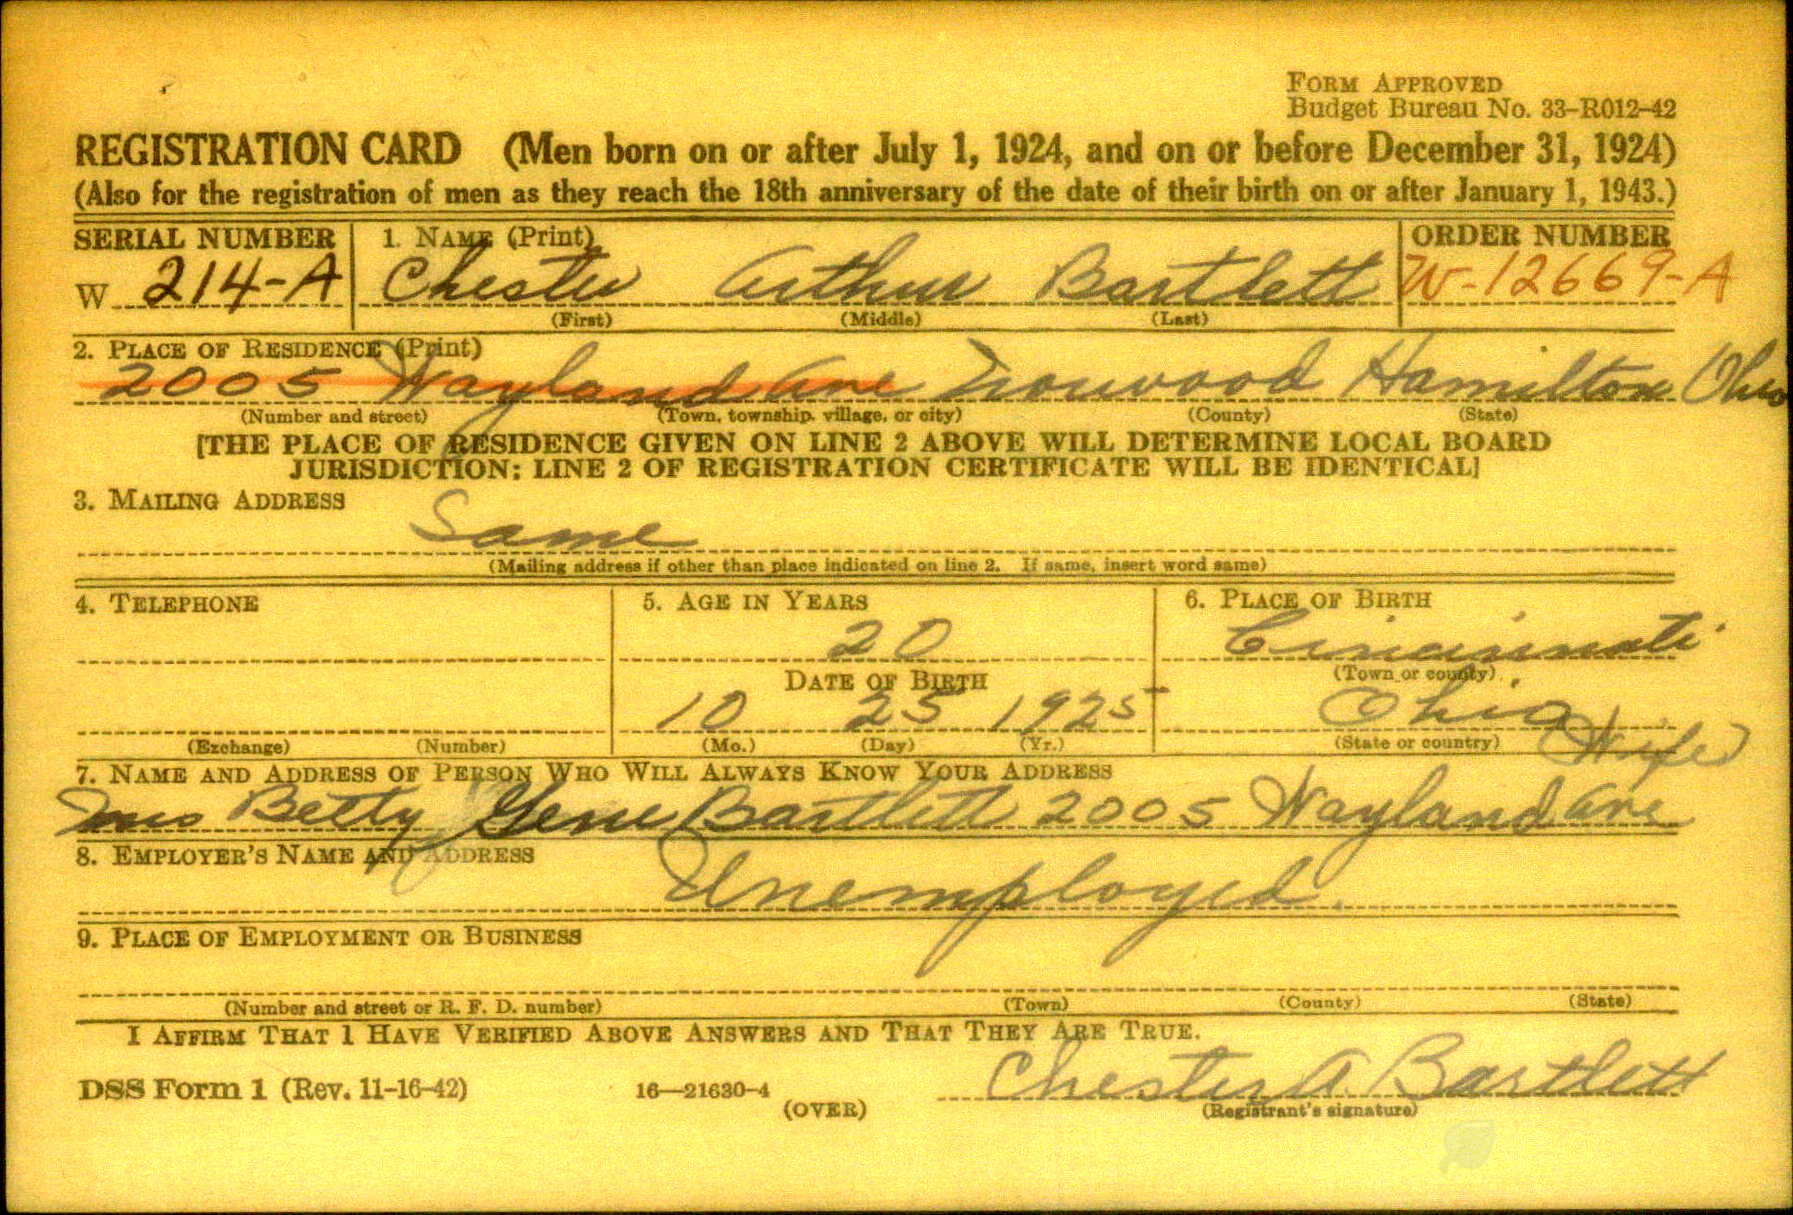 FORM APPROVED
Budget Bureau No. 33–R012–42
REGISTRATION CARD (Men born on or after July 1, 1924, and on or before December 31, 1924)
(Also for the registration of men as they reach the 18th anniversary of the date of their birth on or after January 1, 1943.)
SERIAL NUMBER 1. NAME (Print) ORDER NUMBER
W 214-A Chester Arthur Bartlett W-12669-A
(First) (Middle) (Last)
2. PLACE OF RESIDENCE (Print)
2005 Wayland Ave Norwood Hamilton Ohio
(Number and street) (Town, township, village, or city) (County) (State)
[THE PLACE OF RESIDENCE GIVEN ON LINE 2 ABOVE WILL DETERMINE LOCAL BOARD
JURISDICTION; LINE 2 OF REGISTRATION CERTIFICATE WILL BE IDENTICAL]
3. MAILING ADDRESS
Same
(Mailing address if other than place indicated on line 2. If same, insert word same)
4. TELEPHONE 5. AGE IN YEARS 6. PLACE OF BIRTH
20 Cincinnati
DATE OF BIRTH (Town or county)
10 25 1925 Ohio
(Exchange) (Number) (Mo.) (Day) (Yr.) (State or country) (Wife)
7. NAME AND ADDRESS OF PERSON WHO WILL ALWAYS KNOW YOUR ADDRESS
Mrs Betty Gene Bartlett 2005 Wayland Ave
8. EMPLOYER'S NAME AND ADDRESS
Unemployed.
9. PLACE OF EMPLOYMENT OR BUSINESS
(Number and street or R. F. D. number) (Town) (County) (State)
I AFFIRM THAT I HAVE VERIFIED ABOVE ANSWERS AND THAT THEY ARE TRUE.
DSS Form 1 (Rev. 11-16-42) 16—21630-4 (OVER) Chester A. Bartlett
(Registrant's signature)